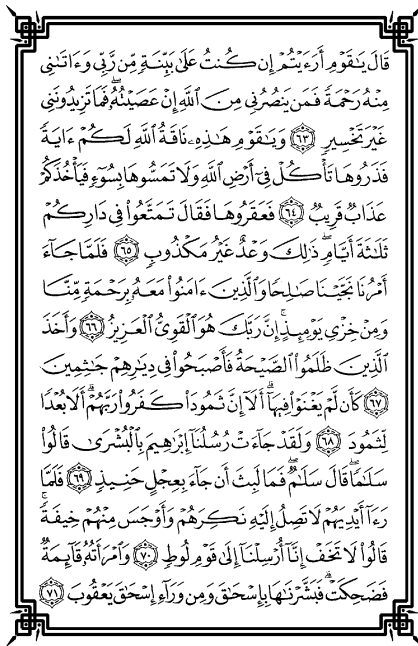 قَالَ يَـٰقَوْمِ أَرَءَيْتُمْ إِن كُنتُ عَلَىٰ بَيِّنَةٍ مِّن رَّبِّى وَءَاتَىٰنِى
مِنْهُ رَحْمَةً فَمَن يَنصُرُنِى مِنَ ٱللَّهِ إِنْ عَصَيْتُهُۥ ۖ فَمَا تَزِيدُونَنِى
غَيْرَ تَخْسِيرٍ ٦٣ وَيَـٰقَوْمِ هَـٰذِهِۦ نَاقَةُ ٱللَّهِ لَكُمْ ءَايَةً
فَذَرُوهَا تَأْكُلْ فِىٓ أَرْضِ ٱللَّهِ وَلَا تَمَسُّوهَا بِسُوٓءٍ فَيَأْخُذَكُمْ
عَذَابٌ قَرِيبٌ ٦٤ فَعَقَرُوهَا فَقَالَ تَمَتَّعُوا۟ فِى دَارِكُمْ
ثَلَـٰثَةَ أَيَّامٍ ۖ ذَٰلِكَ وَعْدٌ غَيْرُ مَكْذُوبٍ ٦٥ فَلَمَّا جَآءَ
أَمْرُنَا نَجَّيْنَا صَـٰلِحًا وَٱلَّذِينَ ءَامَنُوا۟ مَعَهُۥ بِرَحْمَةٍ مِّنَّا
وَمِنْ خِزْىِ يَوْمِئِذٍ ۗ إِنَّ رَبَّكَ هُوَ ٱلْقَوِىُّ ٱلْعَزِيزُ ٦٦ وَأَخَذَ
ٱلَّذِينَ ظَلَمُوا۟ ٱلصَّيْحَةُ فَأَصْبَحُوا۟ فِى دِيَـٰرِهِمْ جَـٰثِمِينَ
٦٧ كَأَن لَّمْ يَغْنَوْا۟ فِيهَآ ۗ أَلَآ إِنَّ ثَمُودَا۟ كَفَرُوا۟ رَبَّهُمْ ۗ أَلَا بُعْدًا
لِّثَمُودَ ٦٨ وَلَقَدْ جَآءَتْ رُسُلُنَآ إِبْرَٰهِيمَ بِٱلْبُشْرَىٰ قَالُوا۟
سَلَـٰمًا ۖ قَالَ سَلَـٰمٌ ۖ فَمَا لَبِثَ أَن جَآءَ بِعِجْلٍ حَنِيذٍ ٦٩ فَلَمَّا
رَءَآ أَيْدِيَهُمْ لَا تَصِلُ إِلَيْهِ نَكِرَهُمْ وَأَوْجَسَ مِنْهُمْ خِيفَةً ۚ
قَالُوا۟ لَا تَخَفْ إِنَّآ أُرْسِلْنَآ إِلَىٰ قَوْمِ لُوطٍ ٧٠ وَٱمْرَأَتُهُۥ قَآئِمَةٌ
فَضَحِكَتْ فَبَشَّرْنَـٰهَا بِإِسْحَـٰقَ وَمِن وَرَآءِ إِسْحَـٰقَ يَعْقُوبَ ٧١